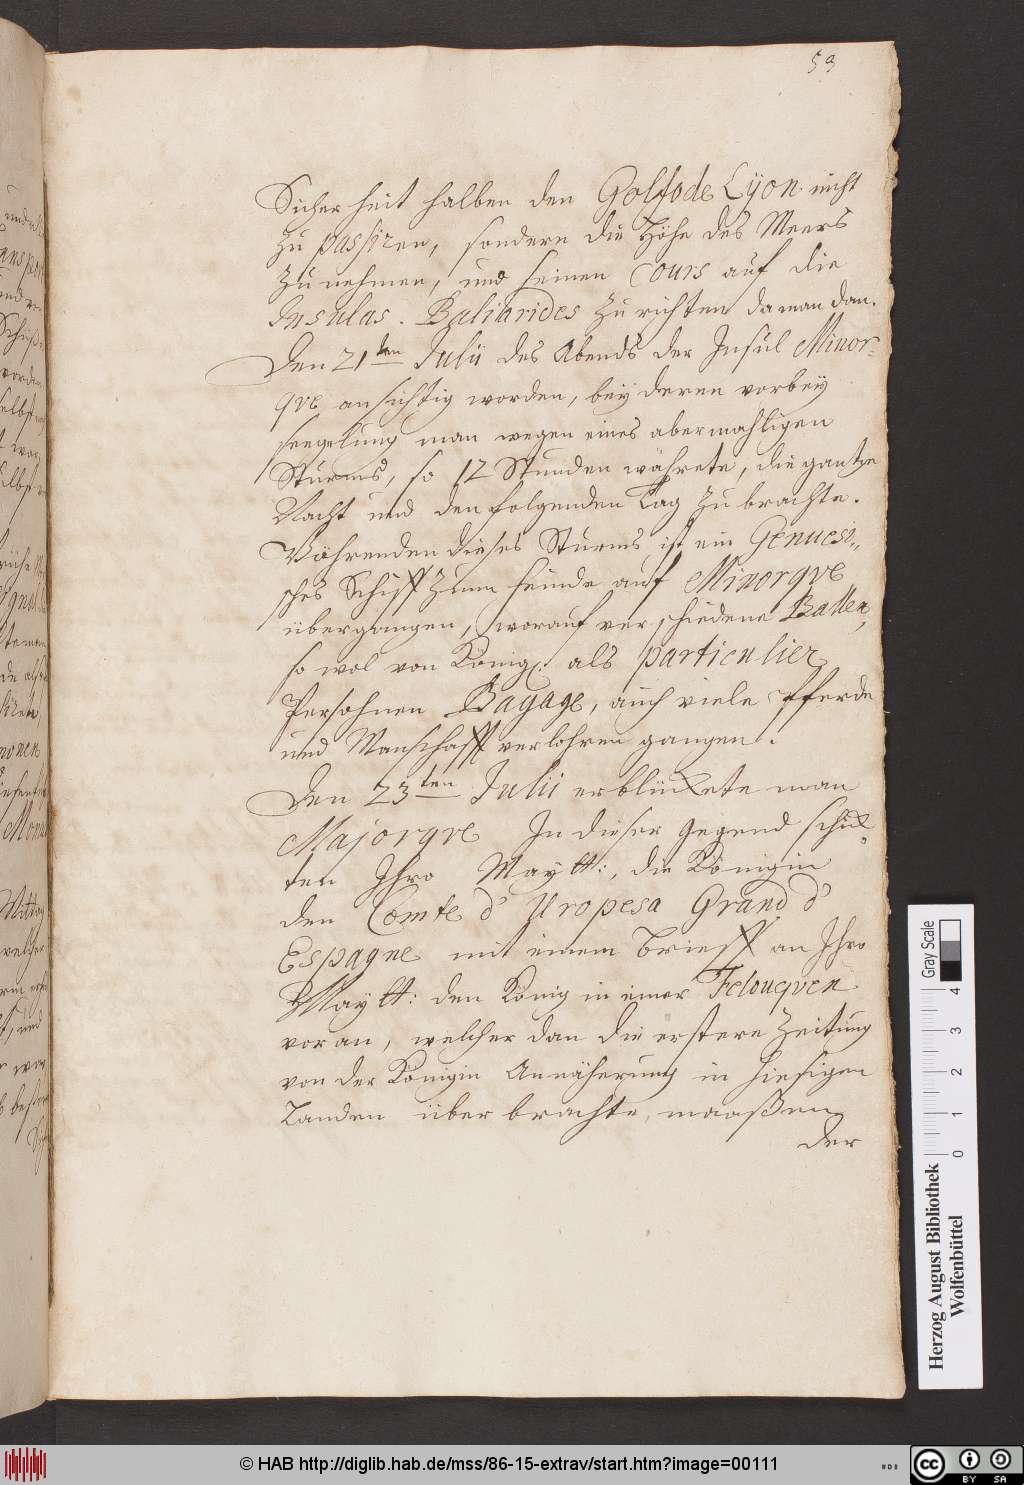 53
Sicherheit halben den Golfode Lÿon nicht
zu passiren, sondern die Höhe des Meers
zu nehmen, und seinen Cours auf die
Insulas. Baliarides zu richten da man dan.
Den 21ten Julii des Abends der Insul Minor-
qve ansichtig worden, bey deren vorbey
seegelung man wegen eines abermahligen
Sturms, so 12 Stunden währete, die gantze
Nacht und den folgenden Tag zu brachte.
Währenden dieses Sturms ist ein Genuesi-
sches Schiff zum feinde auf Minorqve
übergangen, worauf verschiedene Ballen,
so wol von Königl. als particulier
Persohnen Bagage, auch viele Pferde
und Manschafft verlohren gangen.
Den 23ten Julii erblickete man
Majorqve In dieser Gegend schick-
ten Ihro Maytt:, die Königin
den Comte d' Uropesa Grand d'
Espagne mit einem Brieff an Ihro
Maytt: den König in einer Felouqven
voran, welcher dan die erstere Zeitung
von der Königin Annäherung in hiesigen
Landen überbrachte, maaßen
der
Gray Scale
0 1 2 3 4
Herzog August Bibliothek
Wolfenbüttel
© HAB http://diglib.hab.de/mss/86-15-extrav/start.htm?image=00111
cc BY SA